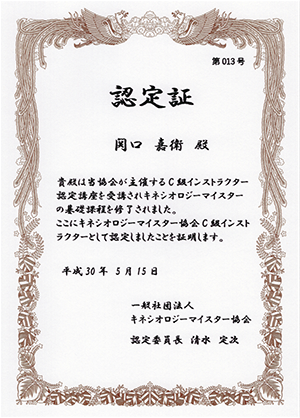 第013号
認定証
関口 嘉衛 殿
貴殿は当協会が主催するC級インストラクター
認定講座を受講されキネシオロジーマイスター
の基礎課程を修了されました。
ここにキネシオロジーマイスター協会C級インスト
ラクターとして認定しましたことを証明します。
平成30年 5月15日
一般社団法人
キネシオロジーマイスター協会
認定委員長 清水 定次